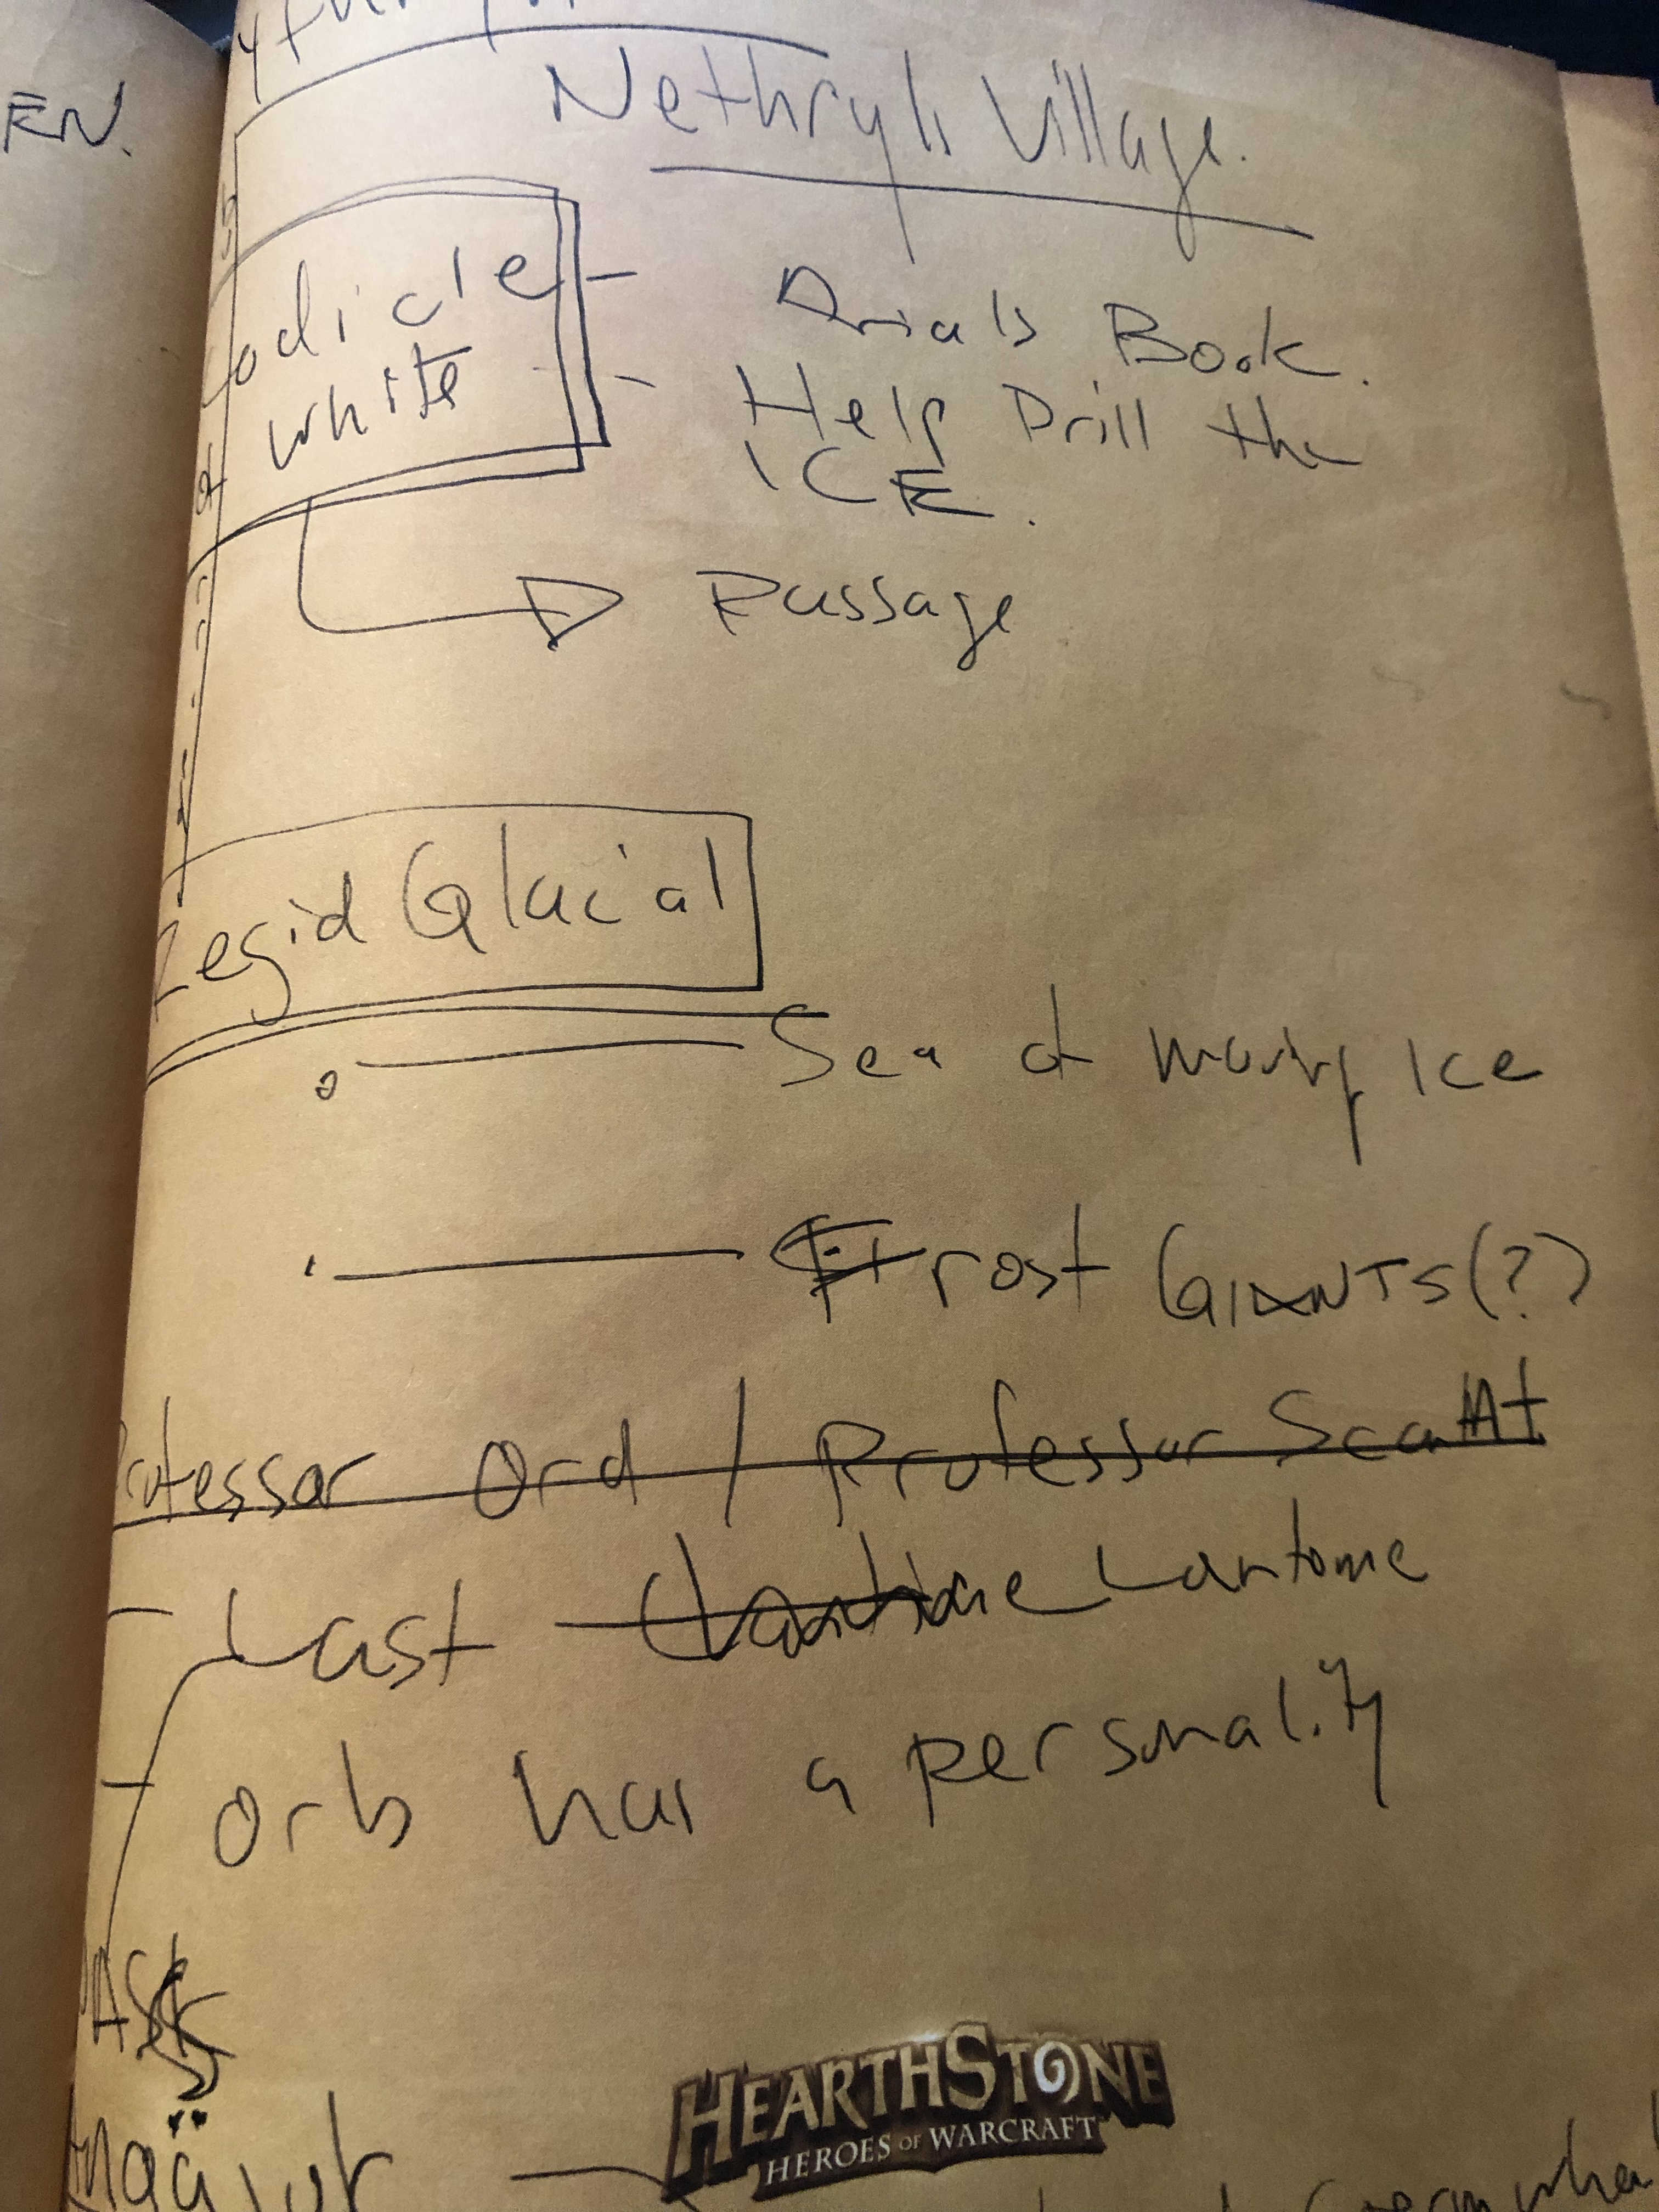 EN.
Nethryls Village.
odicle
white
- Arials Book.
- Help Drill the
ICE.
Passage
Regid Glacial
Sea of moving Ice
Frost GIANTS(?)
Professor Ord / Professor
- Last Lantome
- Orb has a personality
ASK
HEARTHSTONE
HEROES OF WARCRAFT